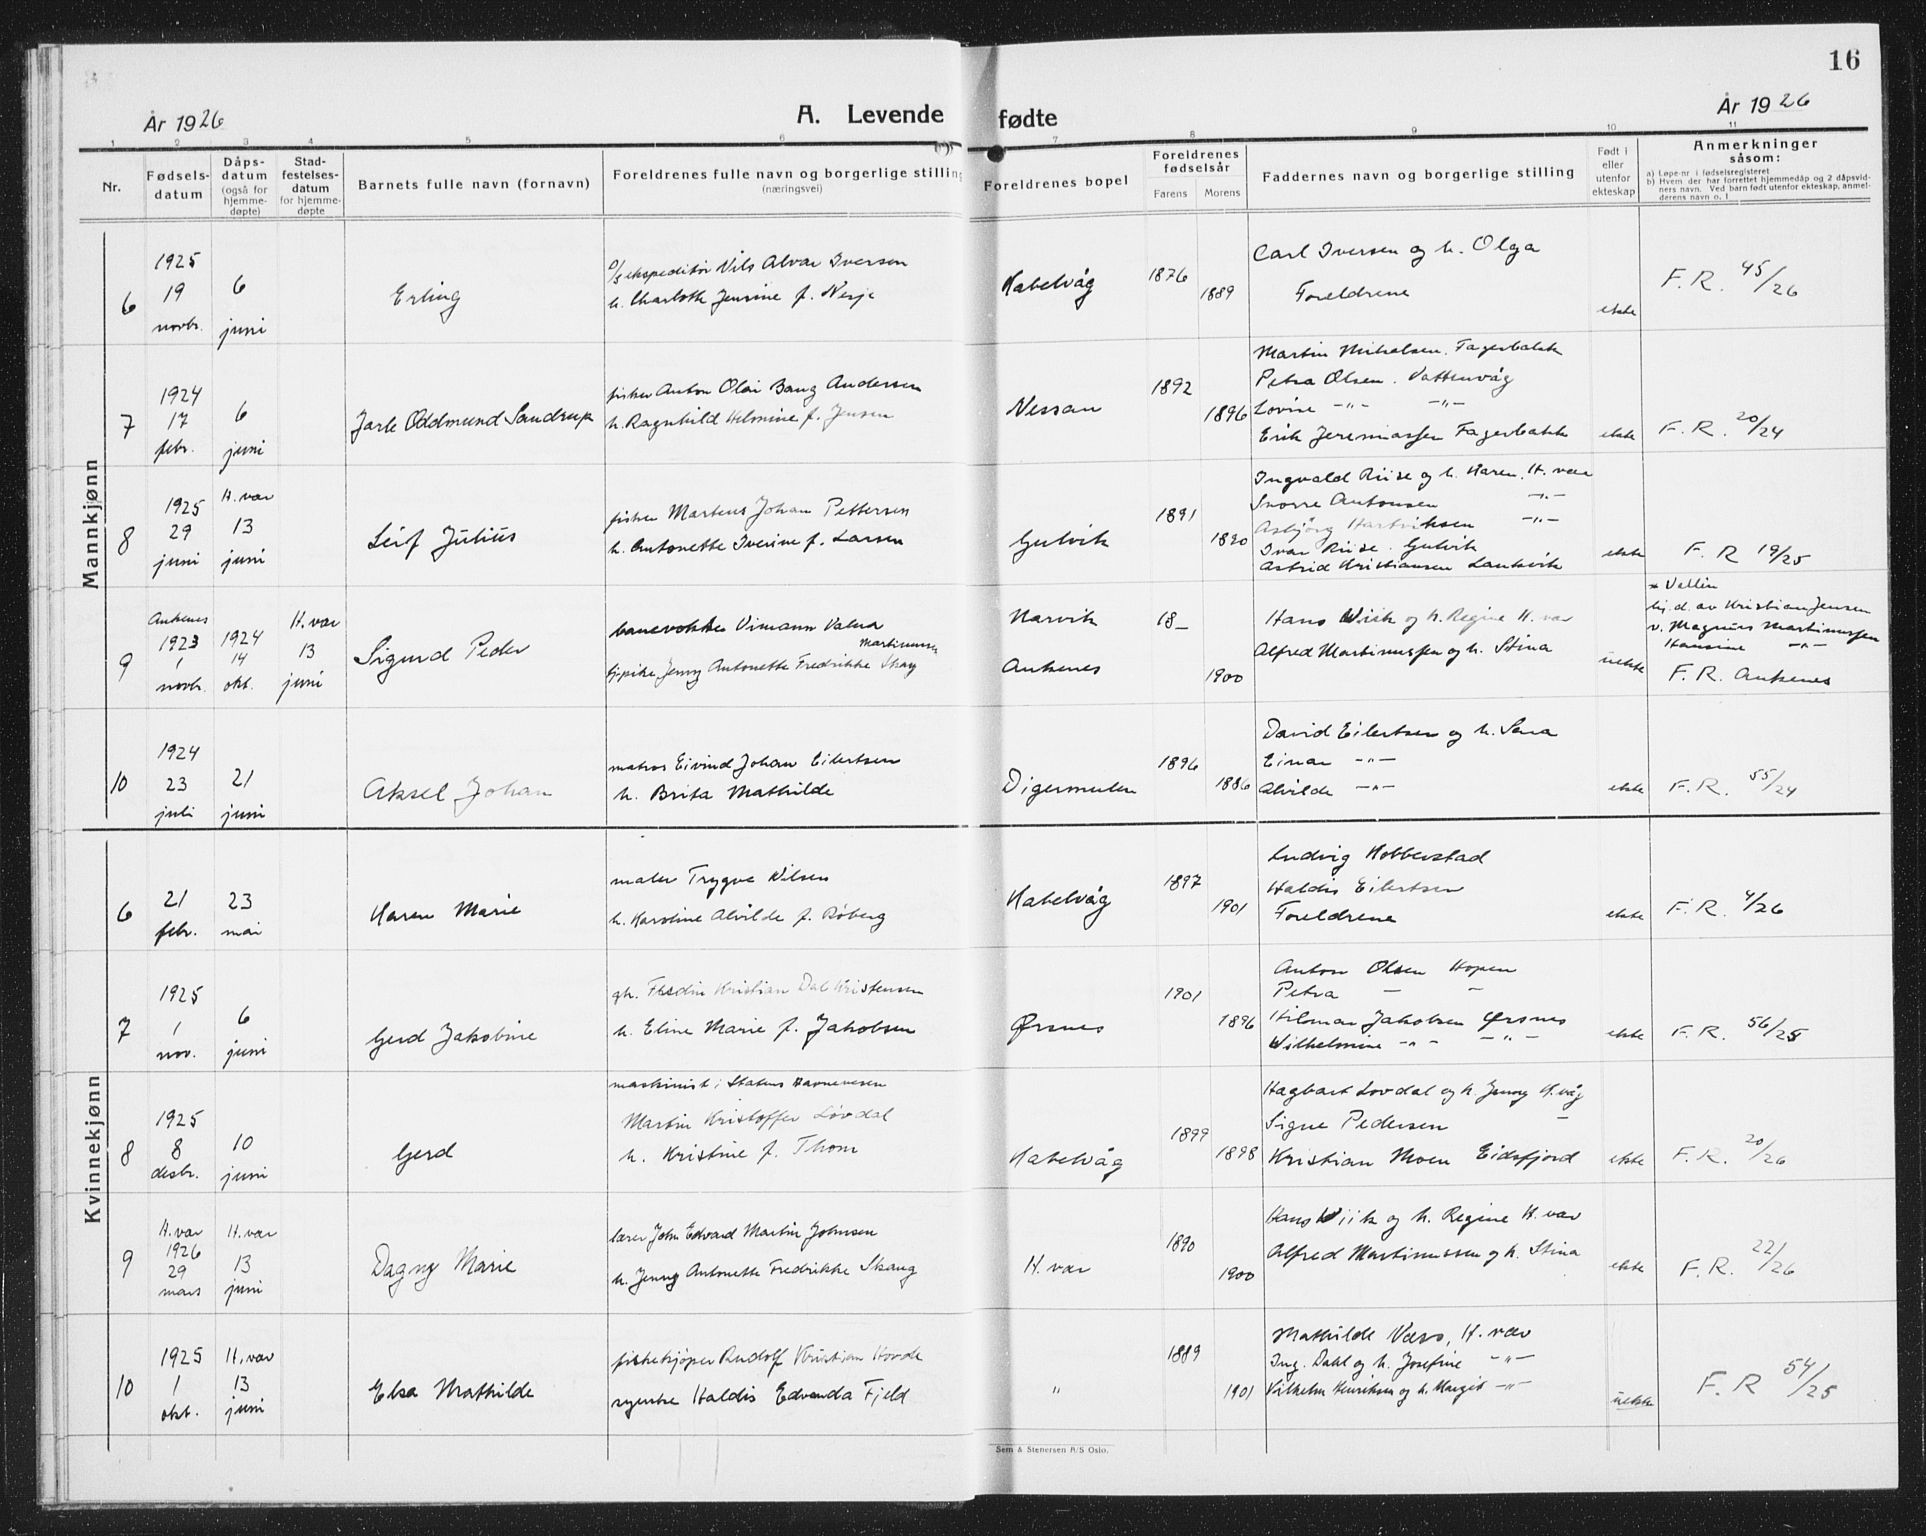 16
År 1926
A. Levende fødte
År 1926
1 2 3 4 5 6 7 8 9 10 11
Nr.
Fødsels-
datum
Dåps-
datum
(også for
hjemme-
døpte)
Stad-
festelses-
datum
for hjemme-
døpte
Barnets fulle navn (fornavn)
Foreldrenes fulle navn og borgerlige stilling
(næringsvei)
Foreldrenes bopel
Foreldrenes
fødselsår
Farens Morens
Faddernes navn og borgerlige stilling
Født i
eller
utenfor
ekteskap
Anmerkninger
såsom:
a) Løpe-nr i fødselsregisteret
b) Hvem der har forrettet hjemmedåp og 2 dåpsvid-
ners navn. Ved barn født utenfor ekteskap, anmel-
derens navn o. l
Mannkjønn
6
1925
19
novbr.
6
juni
Erling
ekspeditør Nils Alvar Iversen
h. Charlotte Jensine f. Nesje
Kabelvåg
1876
1889
Carl Iversen og h. Olga
Foreldrene
ekte
F. R. 45/26
7
1924
17
febr.
6
juni
Jarle Oddmund Sandrup
fisker Anton Olai Bang Andersen
h. Ragnhild Helmine f. Jensen
Nessan
1892
1896
Martin Mikelsen. Fagerbakk
Petra Olsen. Vattenvåg
Lovise -"- -"-
Erik Jeremiassen Fagerbakk
ekte
F. R. 20/24
8
1925
29
juni
H. vær
13
juni
Leif Julius
fisker Martens Johan Pettersen
h. Antonette Iverine f. Larsen
Gulvik
1891
1890
Ingvald Riise og h. Karen. H. vær
Snorre Antonsen -"-
Asbjørg Hartviksen -"-
Ivar Riise. Gulvik
Astrid Kristiansen Laukvik
ekte
F. R 19/25
9
Ankenes
1923
1
novbr.
1924
14
okt.
H. vær
13
juni
Sigurd Peder
banevokter Vimann Valna
Martinussen
pike Jenny Antonette Fredrikke Skaug
Narvik
Ankenes
18_
1900
Hans Wiik og h. Regine H. vær
Alfred Martinussen og h. Stina
uekte
* Vellin
hj. d. av Kristian Jensen
v. Magnus Martinussen
Hansine -"-
F. R. Ankenes
10
1924
23
juli
21
juni
Aksel Johan
matros Eivind Johan Eilertsen
h. Brita Mathilde
Digermulen
1896
1886
David Eilertsen og h. Sara
Einar -"-
Alvilde -"-
ekte
F. R. 55/24
Kvinnekjønn
6
21
febr.
23
mai
Karen Marie
maler Trygve Nilsen
h. Karoline Alvilde f. Røberg
Kabelvåg
1897
1901
Ludvig Kobberstad
Haldis Eilertsen
Foreldrene
ekte
F. R. 4/26
7
1925
1
nov.
6
juni
Gerd Jakobine
gh. Fredin Kristian Dal Kristensen
h. Eline Marie f. Jakobsen
Ørsnes
1901
1896
Anton Olsen Hopen
Petra - "
Hilmar Jakobsen Ørsnes
Wilhelmine -"- -"-
ekte
F. R. 56/25
8
1925
8
desbr.
10
juni
Gerd
maskinist i Statens Havnevesen
Martin Kristoffer Løvdal
h. Kristine f. Thom
Kabelvåg
1899
1898
Hagbart Lovdal og h. Jenny K. våg
Signe Pedersen -
Kristian Moen Eidsfjord
ekte
F. R. 20/26
9
H. vær
1926
29
mars
H. vær
13
juni
Dagny Marie
lærer John Edvard Martin Johnsen
h. Jenny Antonette Fredrikke Skaug
H. vær
1890
1900
Hans Wiik og h. Regine H. vær
Alfred Martinussen og h. Stina
ekte
F. R. 22/26
10
1925
1
okt.
H. vær
13
juni
Elsa Mathilde
fiskekjøper Rudolf Kristian Hovde
syerske Haldis Edvarda Fjeld
"
1889
1901
Mathilde Næss, H. vær
Ing. Dahl og h. Josefine -"-
Vilhelm Henriksen og h. Margit -"-
uekte
F. R 54/25
Sem & Stenersen A/S Oslo.